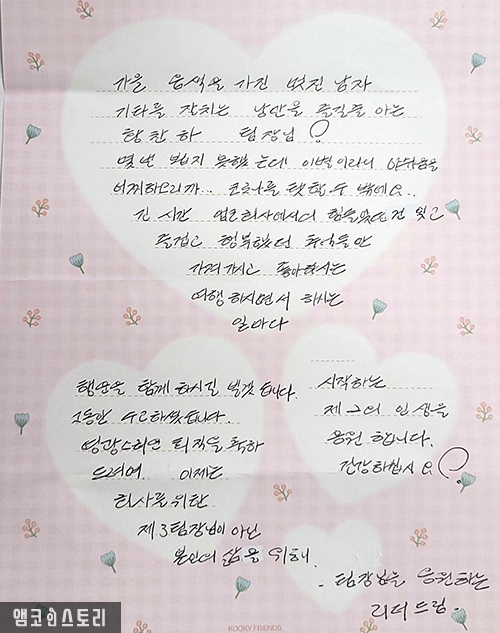 가을 음색을 가진 멋진 남자
기타를 잘치는 낭만을 즐길줄 아는
황찬하 팀장님!
몇번 뵙지 못했는데 이별이라니 아쉬움을
어찌하오리까... 코로나를 탓할 수 밖에요.
긴 시간 앰코회사에서의 힘들었던건 잊고
즐겁고 행복했던 추억들만
가져가시고 좋아하시는
여행 하시면서 하시는
일마다
행운을 함께 하시길 빌겠습니다.
그동안 수고하셨습니다.
영광스러운 퇴직을 축하
드려여. 이제는
회사를 위한
제3팀장님이 아닌
본인의 삶을 위해.
시작하는
제2의 인생을
응원 합니다.
건강하십시요!
- 팀장님을 응원하는
리더 드림 -
앰코인스토리
KOOKY FRIENDS.